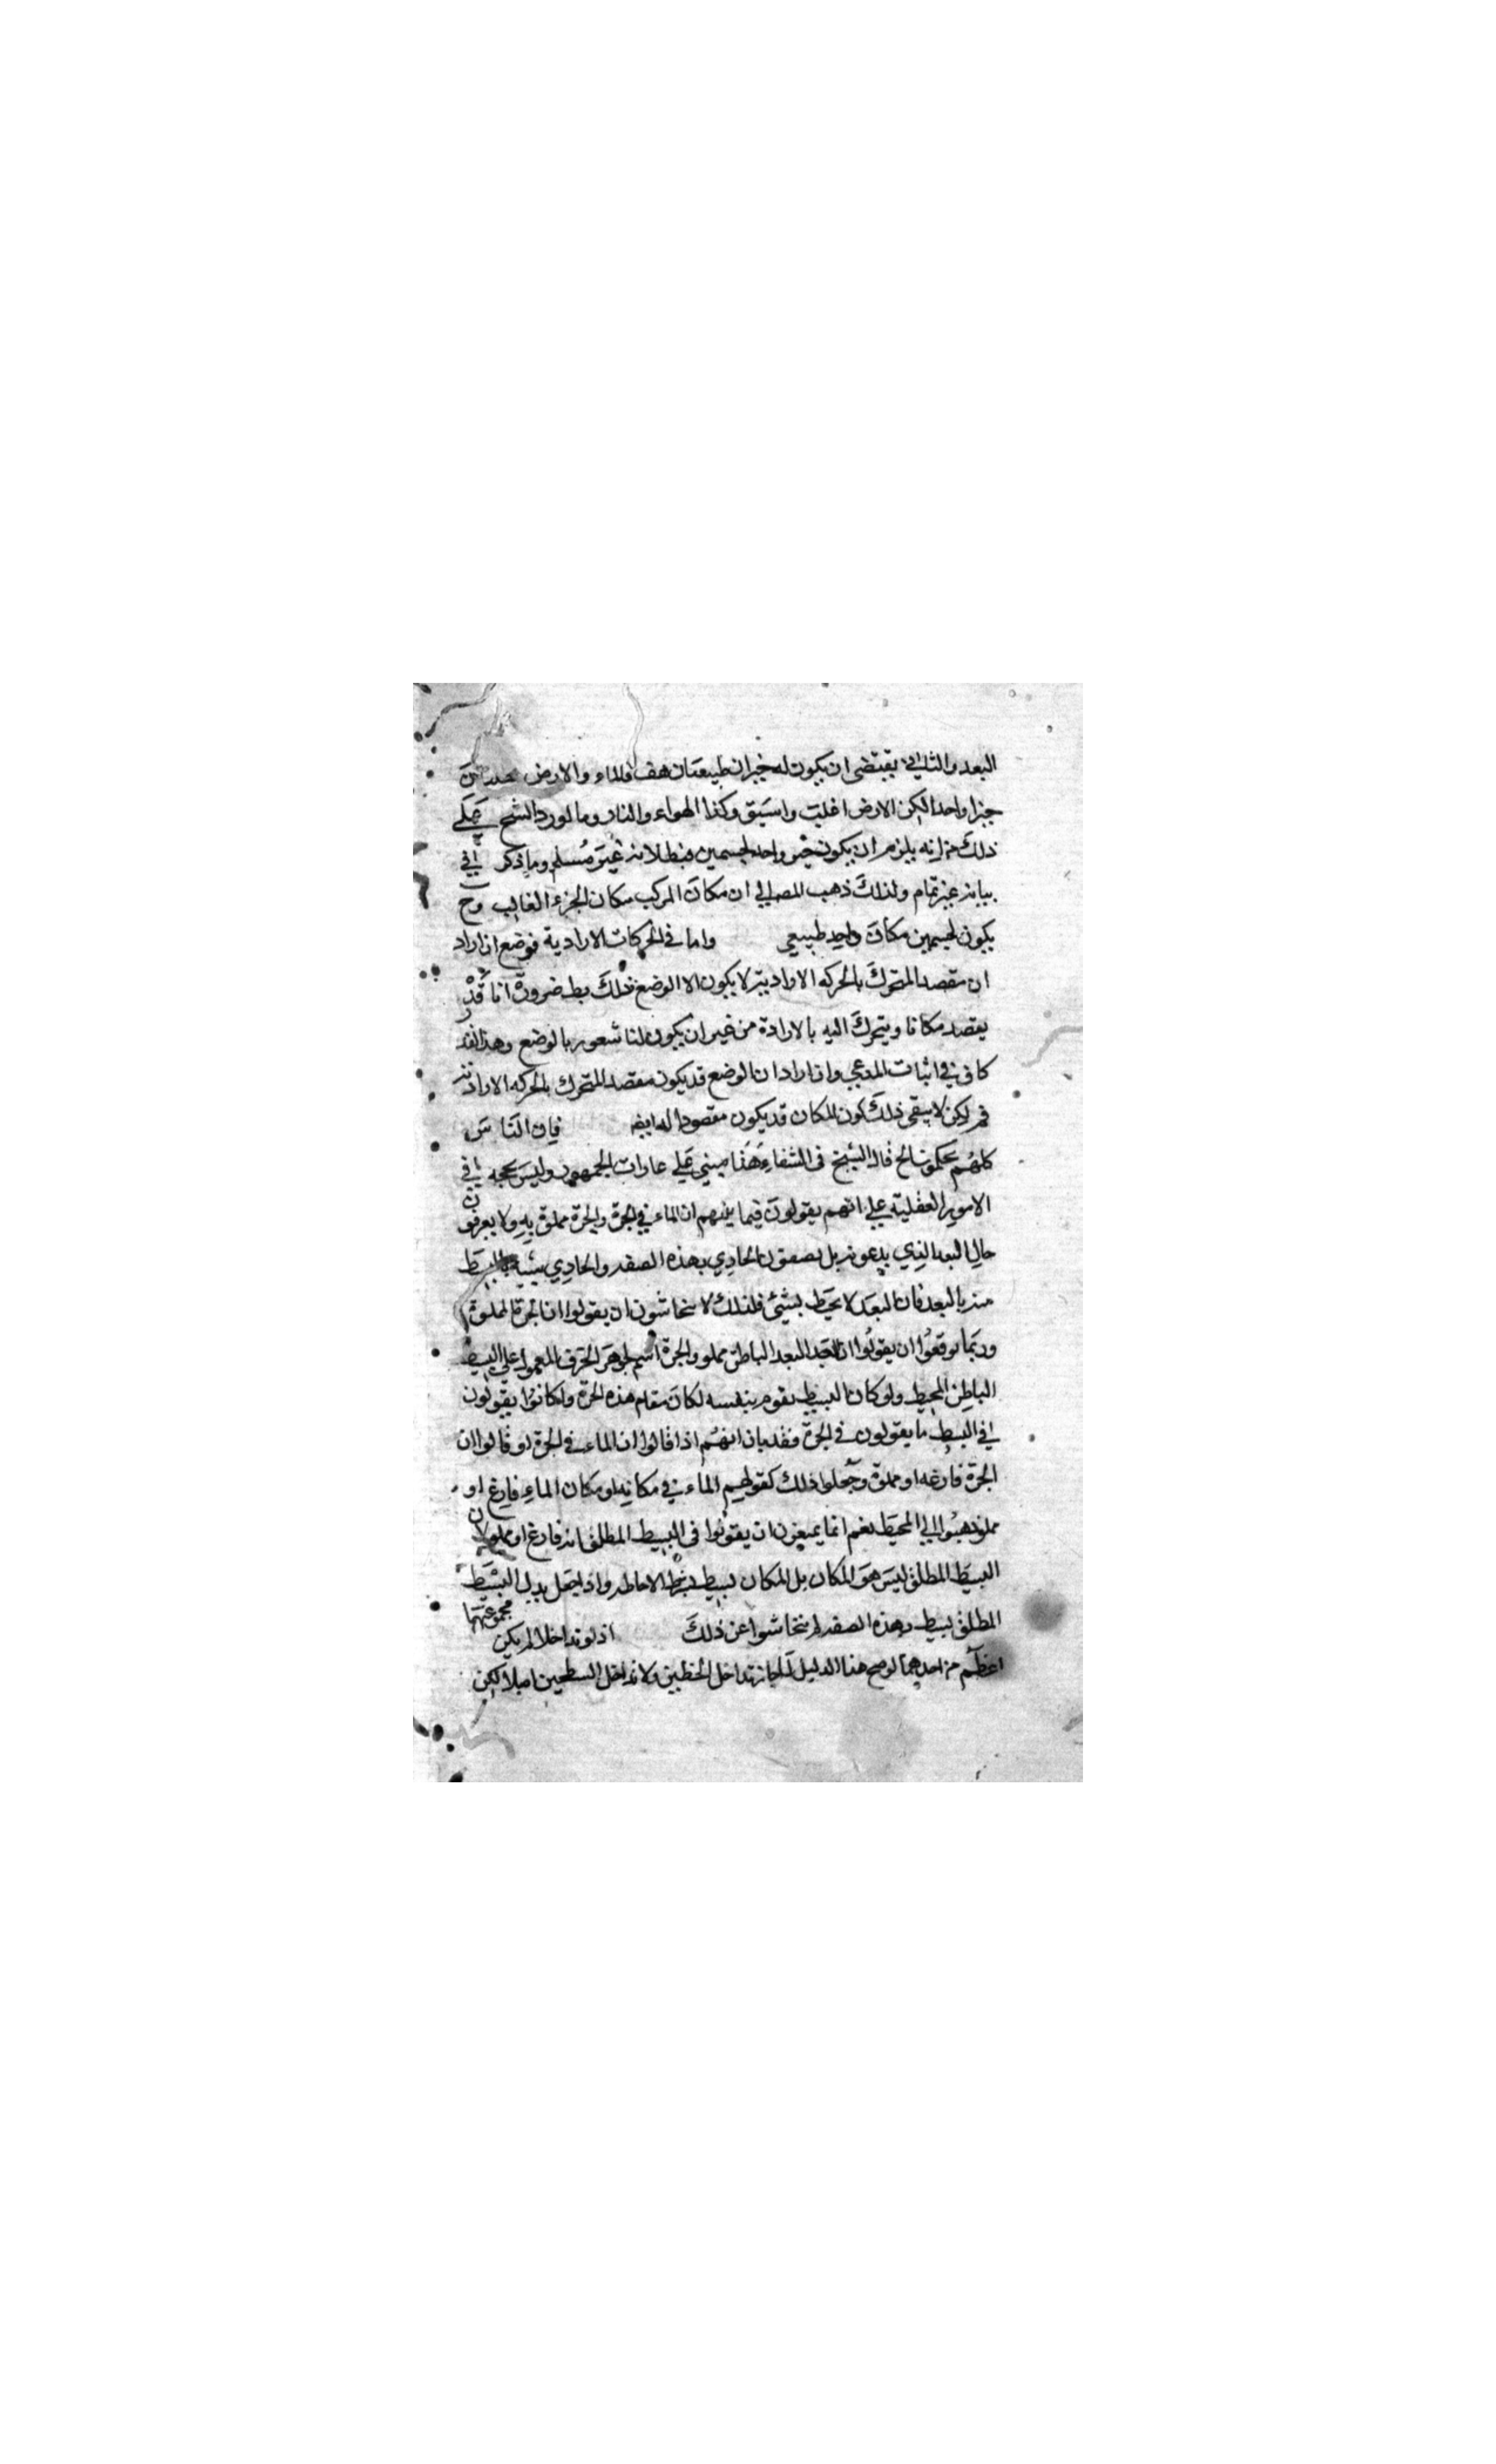 البعد والثاني يقتضي ان يكون له حيزان طبيعيتان هف فالماء والارض
حيزا واحدا لكن الارض اغلبت واسبق وكذا الهواء والنار وما اورد الشيخ على
ذلك من انه يلزم ان يكون حيز واحد لجسمين فبطلانه غير مسلم وما ذكر في
بيانه غير تمام ولذلك ذهب المص الى ان مكان المركب مكان الجزء الغالب وح
يكون لجسمين مكان واحد طبيعي واما في الحركات الارادية فوضع ان اراد
ان مقصد المتحرك بالحركه الارادية لا يكون الا الوضع فذلك بط ضرورة انا قد
يقصد مكانا ويتحرك اليه بالارادة من غير ان يكون لنا شعور بالوضع وهذا القدر
كاف في اثبات المدعى وان اراد ان الوضع قد يكون مقصد المتحرك بالحركه الارادية
فم لكن لا ينفي ذلك كون المكان قد يكون مقصودا له ايضه فان الناس
كلهم يحكمون الخ قال الشيخ في الشفاء هذا مبني على عادات الجمهور وليس بحجه في
الامور العقلية على انهم يقولون فيما بينهم ان الماء في الجرة والجرة مملوة به ولا يعرفون
حال البعد الذي يدعونه بل يصفون الحاوي بهذه الصفه والحاوي بالبسيط
منه بالبعد فان البعد لا يحيط بشيئ فلذلك لا يتحاشون ان يقولوا ان الجرة مملوة
وربما توقعوا ان يقولوا ان البعد الباطن مملو والجرة اسم لجوهر الخزف المعمول على البسيط
الباطن المحيط ولو كان البسيط يقوم بنفسه لكان مقام هذه الجرة ولكانوا يقولون
في البسيط ما يقولون في الجرة فقد بان انهم اذا قالوا ان الماء في الجرة او قالوا ان
الجرة فارغه او مملوة وجعلوا ذلك كقولهم الماء في مكانه او مكان الماء فارغ او
مملو ذهبوا الى المحيط نعم انما يمنعون ان يقولوا في البسيط المطلق انه فارغ او مملو لان
البسيط المطلق ليس هو المكان بل المكان بسيط بشرط الاحاطه واذا جعل بدل البسيط
المطلق بسيط بهذه الصفه لم يتحاشوا عن ذلك اذ لو تداخلا لم يكن مجموعهما
اعظم من احدهما لو صح هذا الدليل لما جاز تداخل الخطين ولا تداخل السطحين اصلا لكن